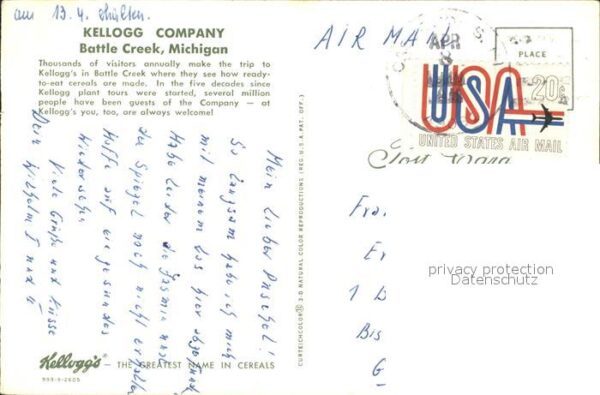 am 13.4. erhalten.
KELLOGG COMPANY
Battle Creek, Michigan
Thousands of visitors annually make the trip to
Kellogg's in Battle Creek where they see how ready-
to-eat cereals are made. In the five decades since
Kellogg plant tours were started, several million
people have been guests of the Company — at
Kellogg's you, too, are always welcome!
Mein lieber
So langsam habe ich mich
mit meinem Los hier
Habe leider die
den Spiegel noch nicht erhalten
Hoffe auf ein gesundes
Wiedersehen
Viele Grüße und Küsse
Dein Wilhelm
Kellogg's — THE GREATEST NAME IN CEREALS
CURTEICHCOLOR 3-D NATURAL COLOR REPRODUCTIONS (REG. U.S.A. PAT. OFF.)
AIR MAIL
APR
8
PLACE
USA 20c
UNITED STATES AIR MAIL
Fra.
Er
1 B
Bis
G
privacy protection
Datenschutz